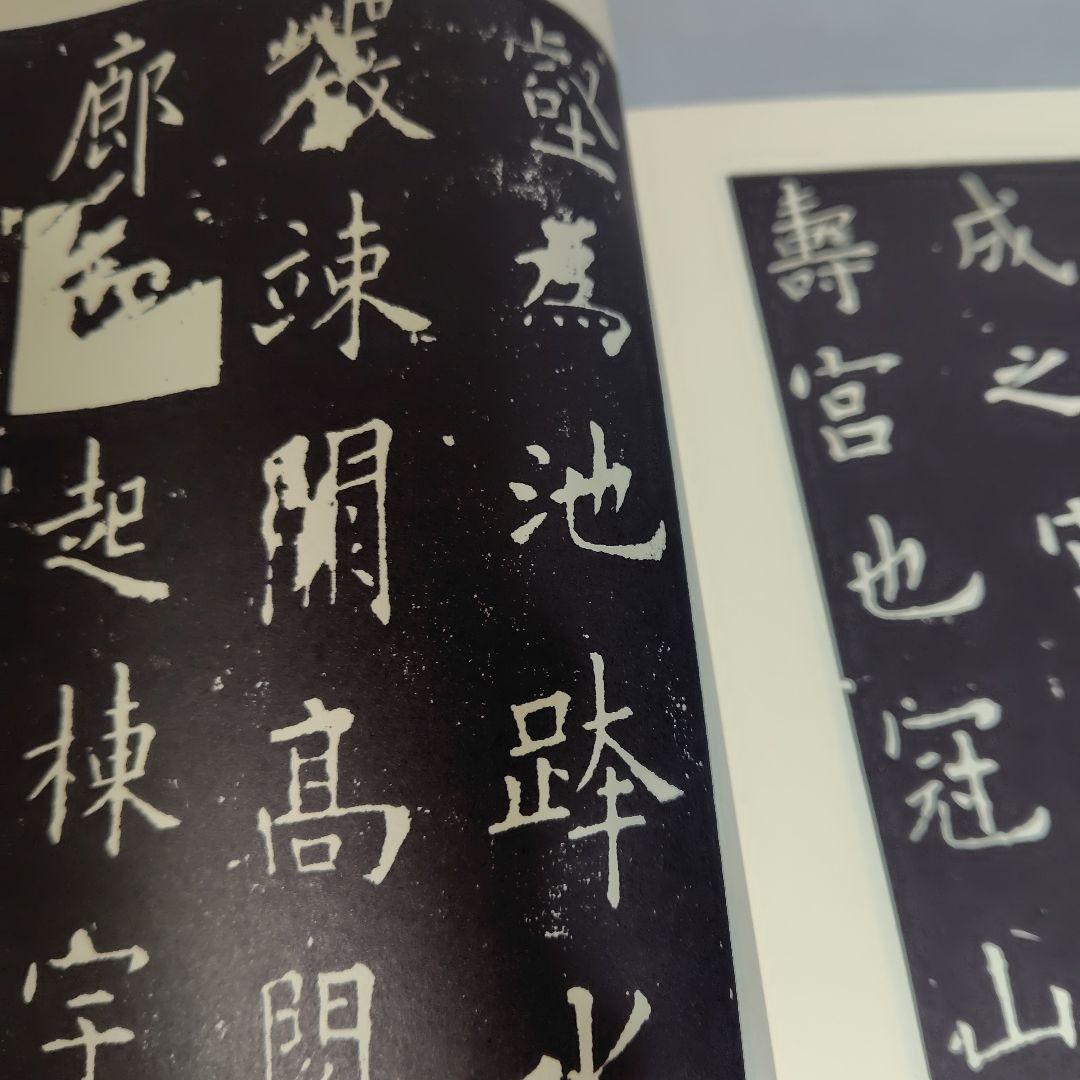 成之宮
壽宮也冠山
壑為池跨水
巖竦闕髙閣
廊四起棟宇